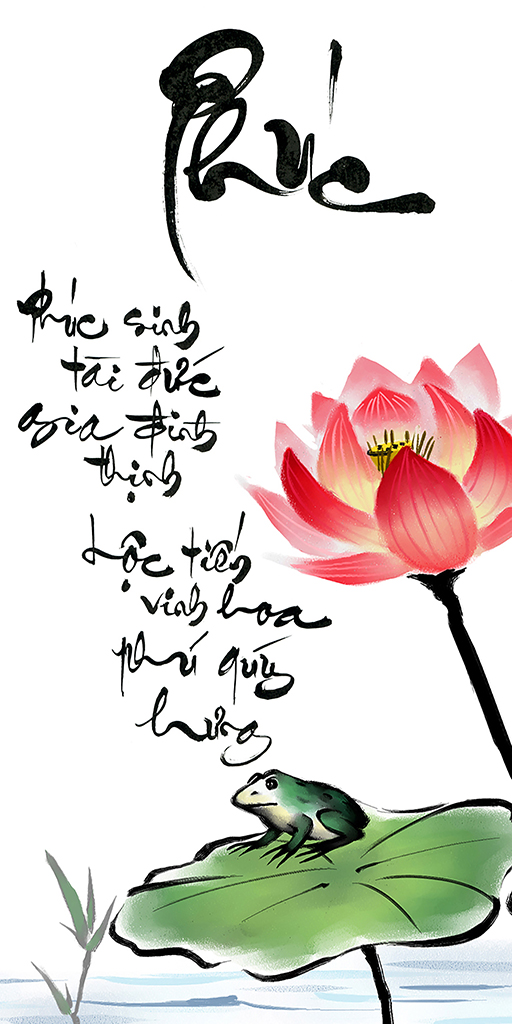 Phúc
Phúc sinh
tài đức
gia đình
thịnh
Lộc tiến
vinh hoa
phú qúy
hưng